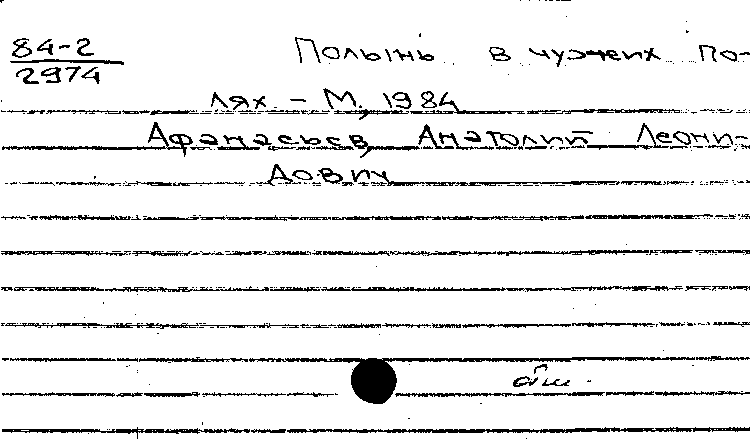 84-2 Полынь в чужих по-
2974
лях - М, 1984
Афанасьев, Анатолий Леони-
дович